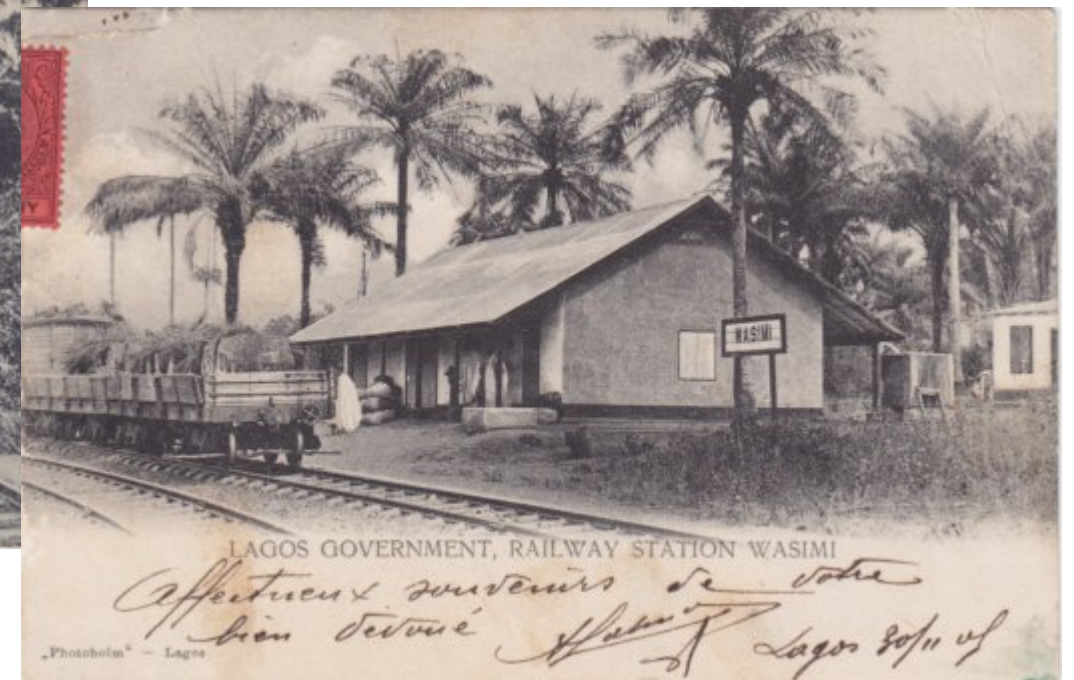 Y
WASIMI
LAGOS GOVERNMENT, RAILWAY STATION WASIMI
Affectueux souvenirs de votre
bien dévoué
Lagos 30/11 05
„Photoholm“ – Lagos